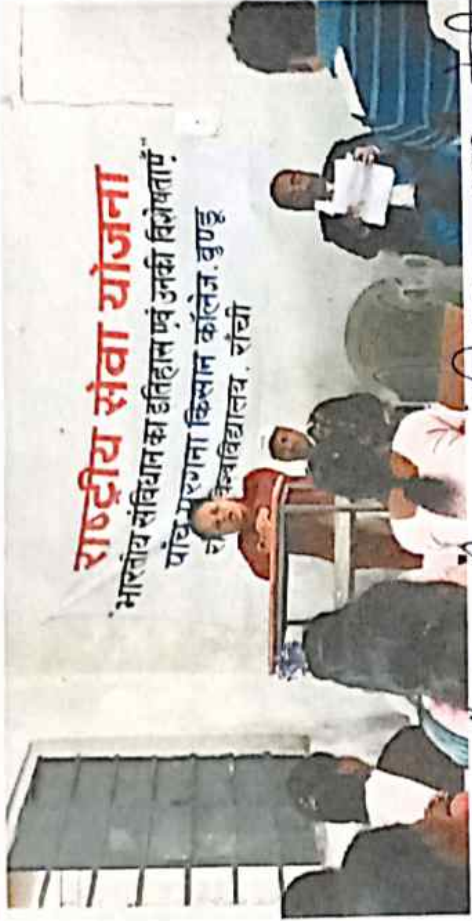 राष्ट्रीय सेवा योजना
"भारतीय संविधान का इतिहास एवं उनकी विशेषताएँ"
पांच परगना किसान कॉलेज, बुण्डू
विश्वविद्यालय, रांची